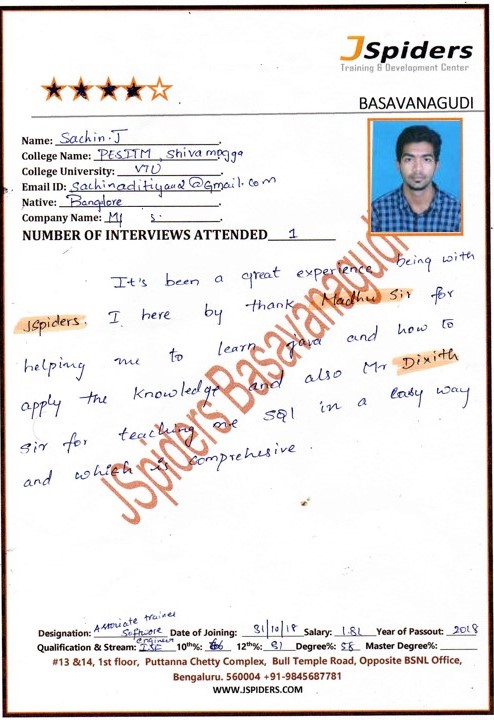 JSpiders
Training & Development Center
BASAVANAGUDI
Name: Sachin.J
College Name: PESITM, Shivamogga
College University: VTU
Email ID: Sachinaditiyana2@Gmail.com
Native: Banglore
Company Name:
NUMBER OF INTERVIEWS ATTENDED 1
It's been a great experience being with
JSpiders. I here by thank Madhu Sir for
helping me to learn java and how to
apply the knowledge and also Mr Dixith
Sir for teaching me SQl in a easy way
and which is comprehesive.
JSpiders Basavanagudi
Associate trainee
Software
engineer
Designation: Date of Joining: 31/10/18 Salary: 1.8L Year of Passout: 2018
Qualification & Stream: ISE 10th%: 66 12th%: 51 Degree%: 58 Master Degree%:
#13 &14, 1st floor, Puttanna Chetty Complex, Bull Temple Road, Opposite BSNL Office,
Bengaluru. 560004 +91-9845687781
WWW.JSPIDERS.COM